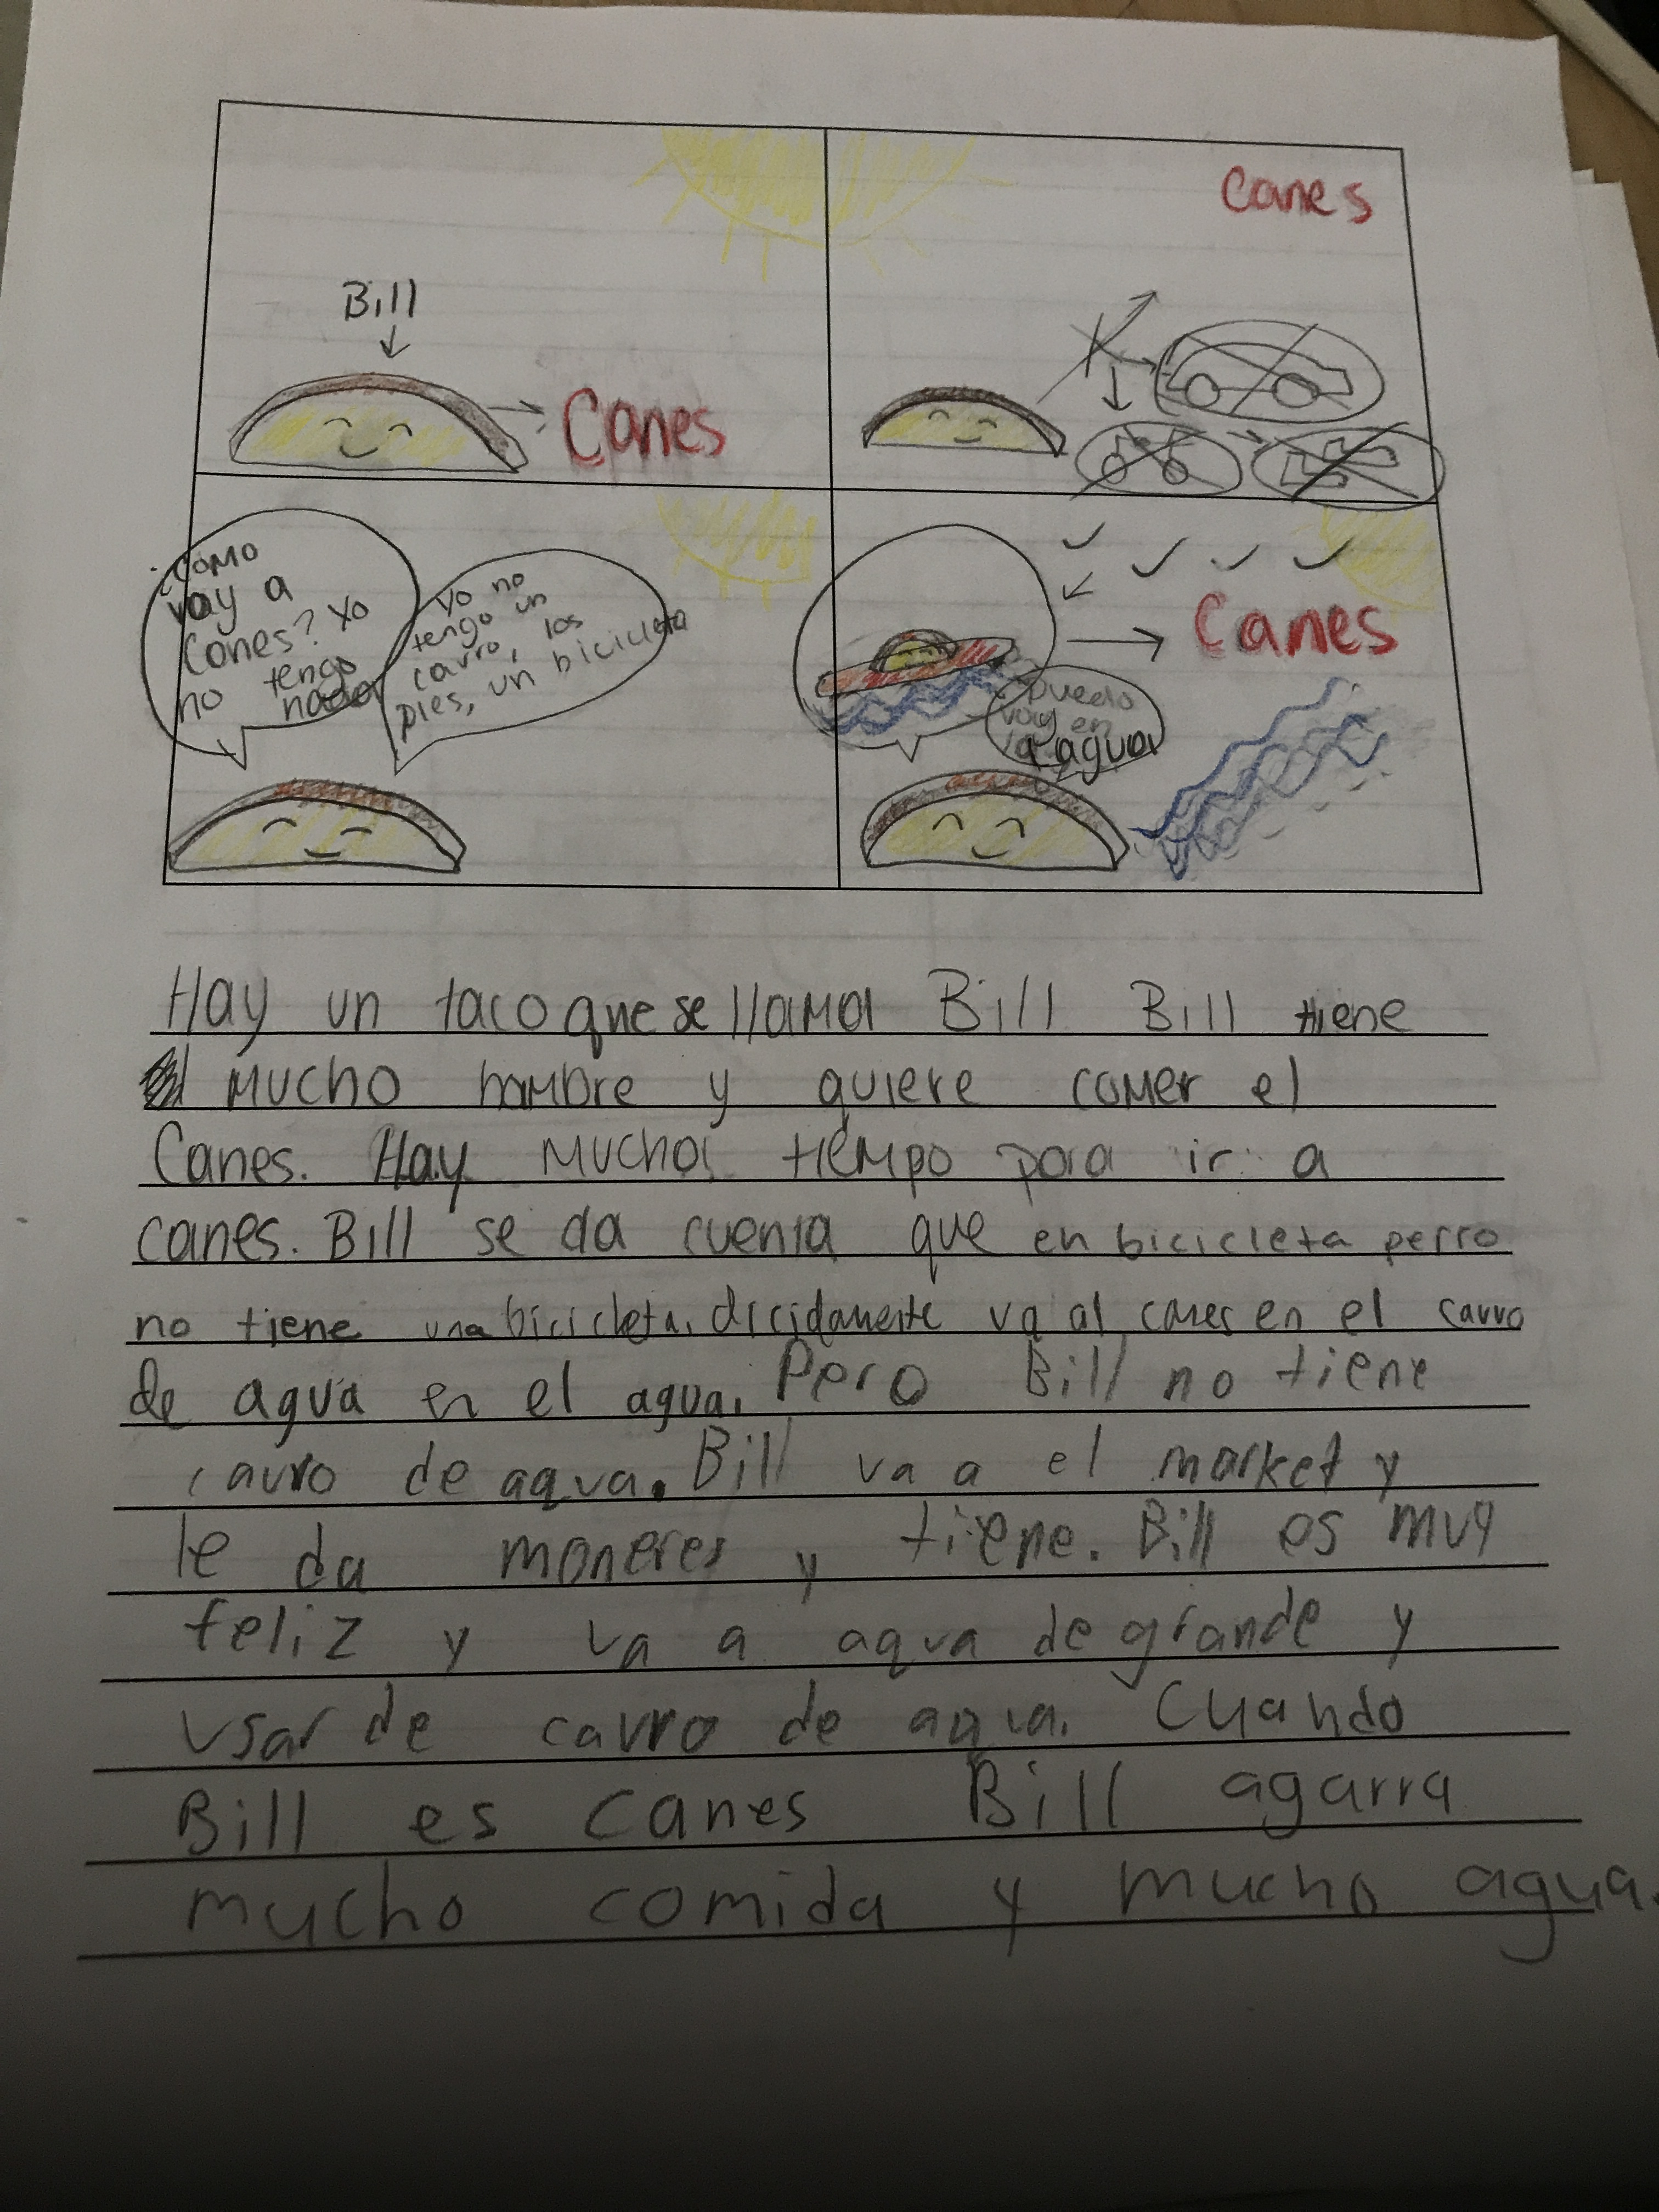 Bill
Canes
Canes
¿como
voy a
Canes? Yo
no tengo
nada
Yo no
tengo un
carro, los
pies, un bicicleta
Canes
puedo
voy en
la agua
Hay un taco que se llama Bill Bill tiene
mucho hambre y quiere comer el
Canes. Hay mucho tiempo para ir a
canes. Bill se da cuenta que en bicicleta perro
no tiene una bicicleta. dicidamente va al canes en el carro
de agua en el agua. Pero Bill no tiene
carro de agua. Bill va a el market y
le da moneres y tiene. Bill es muy
feliz y va a agua de grande y
usar de carro de agua. Cuando
Bill es Canes Bill agarra
mucho comida y mucho agua.